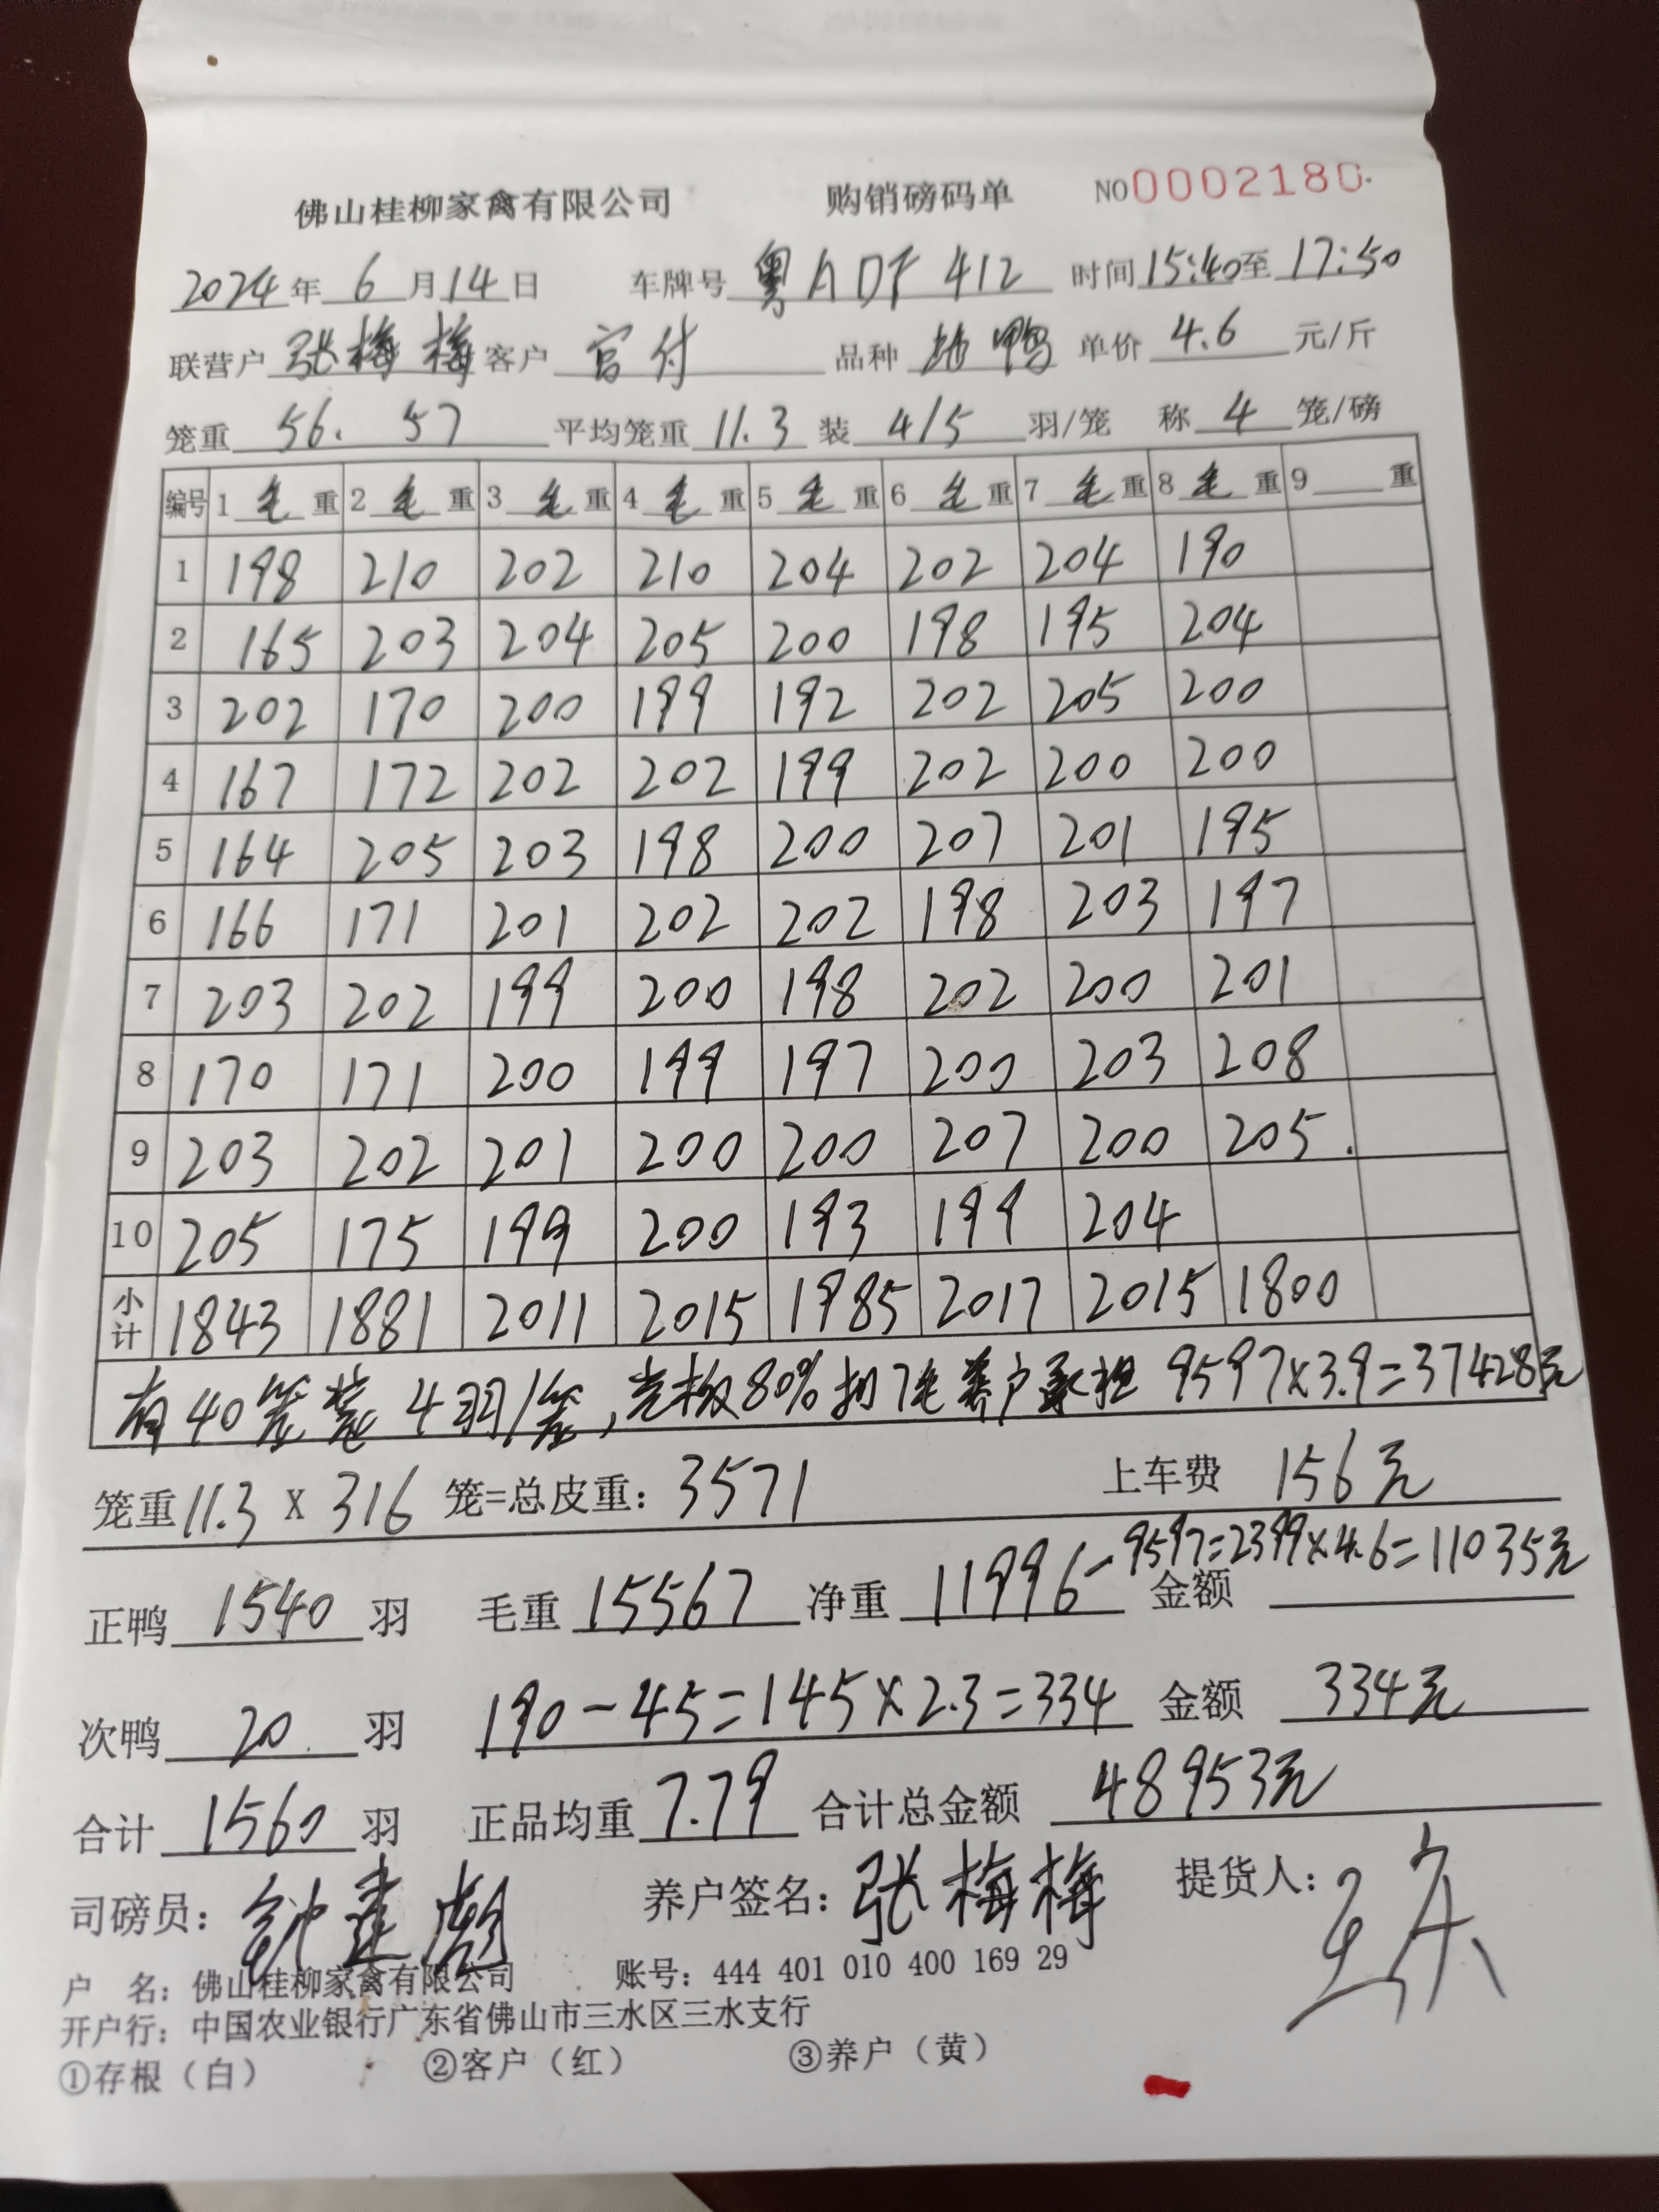 佛山桂柳家禽有限公司 购销磅码单 NO0002180
2024年 6月14日 车牌号 粤ADF412 时间15:40至17:50
联营户 张梅梅 客户 官付 品种 鸭 单价 4.6 元/斤
笼重 56. 57 平均笼重 11.3 装 4/5 羽/笼 称 4 笼/磅
编号 1 毛 重 2 毛 重 3 毛 重 4 毛 重 5 毛 重 6 毛 重 7 毛 重 8 毛 重 9 重
1 198 210 202 210 204 202 204 190
2 165 203 204 205 200 198 195 204
3 202 170 200 199 192 202 205 200
4 167 172 202 202 199 202 200 200
5 164 205 203 198 200 207 201 195
6 166 171 201 202 202 198 203 197
7 203 202 199 200 198 202 200 201
8 170 171 200 199 197 200 203 208
9 203 202 201 200 200 207 200 205.
10 205 175 199 200 193 199 204
小计 1843 1881 2011 2015 1985 2017 2015 1800
有40笼装4羽/笼, 80%扣7毛养户承担 9597×3.9=37428元
笼重11.3 X 316 笼=总皮重: 3571 上车费 156元
正鸭 1540 羽 毛重 15567 净重 11996-9597=2399×4.6=11035元 金额
次鸭 20 羽 190-45=145×2.3=334 金额 334元
合计 1560 羽 正品均重 7.79 合计总金额 48953元
司磅员: 钟建 养户签名: 张梅梅 提货人:
户 名: 佛山桂柳家禽有限公司 账号: 444 401 010 400 169 29
开户行: 中国农业银行广东省佛山市三水区三水支行
①存根(白) ②客户(红) ③养户(黄)